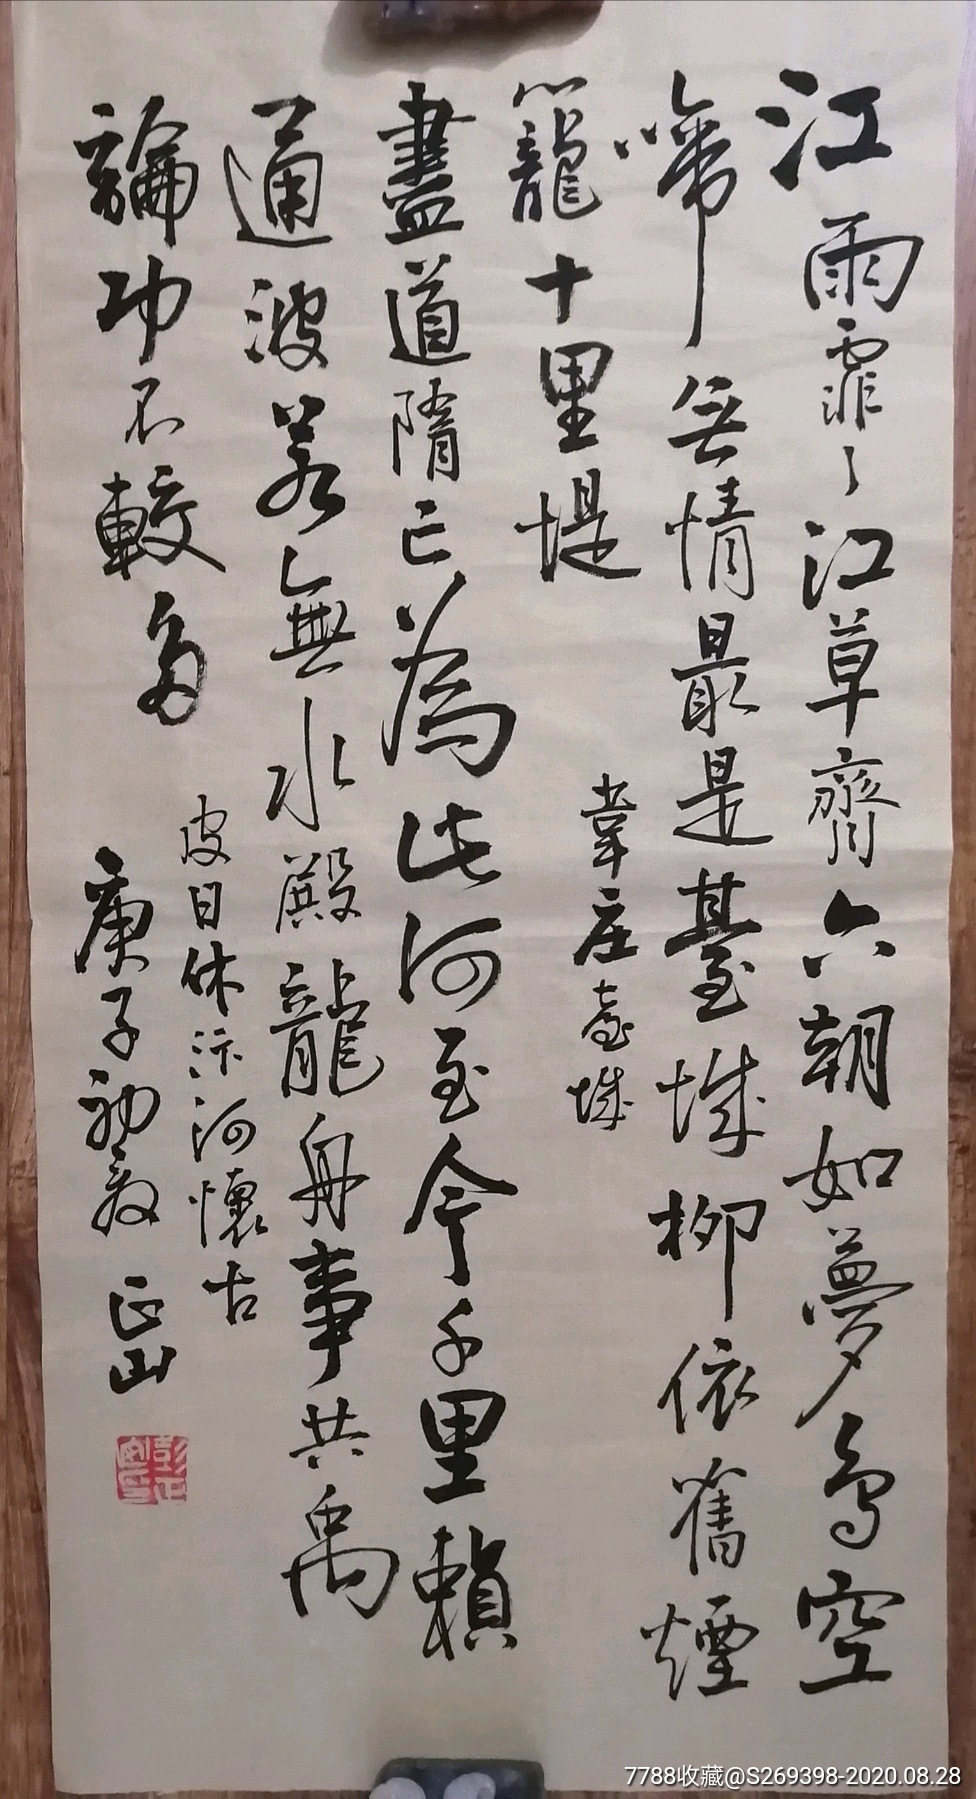 江雨霏〻江草齊六朝如夢鳥空
啼無情最是臺城柳依舊煙
籠十里堤
韋庄臺城
盡道隋亡為此河至今千里賴
通波若無水殿龍舟事共禹
論功不較多
皮日休汴河懷古
庚子初夏 正山
7788收藏@S269398-2020.08.28